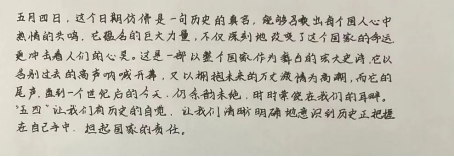 五月四日，这个日期仿佛是一句历史的真名，能够召唤出每个国人心中
热情的共鸣，它蕴含的巨大力量，不仅深刻地改变了这个国家的命运，
更冲击着人们的心灵。这是一部以整个国家作为舞台的宏大史诗，它以
告别过去的高声呐喊开幕，又以拥抱未来的万丈豪情为高潮，而它的
尾声，直到一个世纪后的今天，仍余韵未绝，时时萦绕在我们的耳畔。
“五四”让我们有历史的自觉，让我们清晰明确地意识到历史正把握
在自己手中，担起国家的责任。